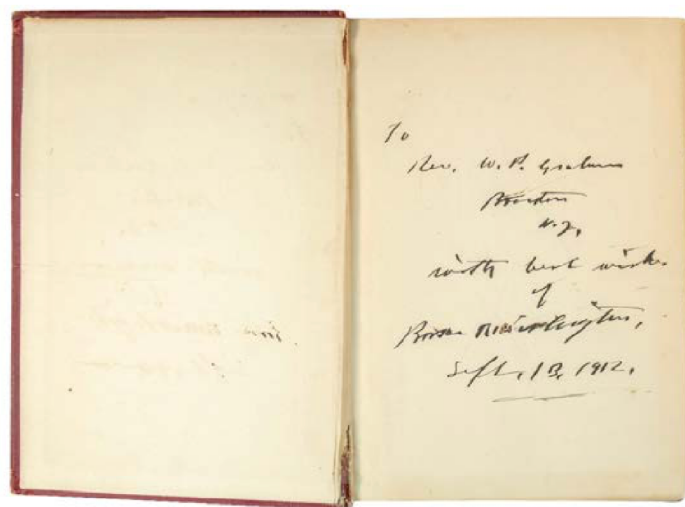 To
Rev. W. P. Graham
N.Y.
with best wishes
of
Booker T. Washington,
Sept. 13, 1912.